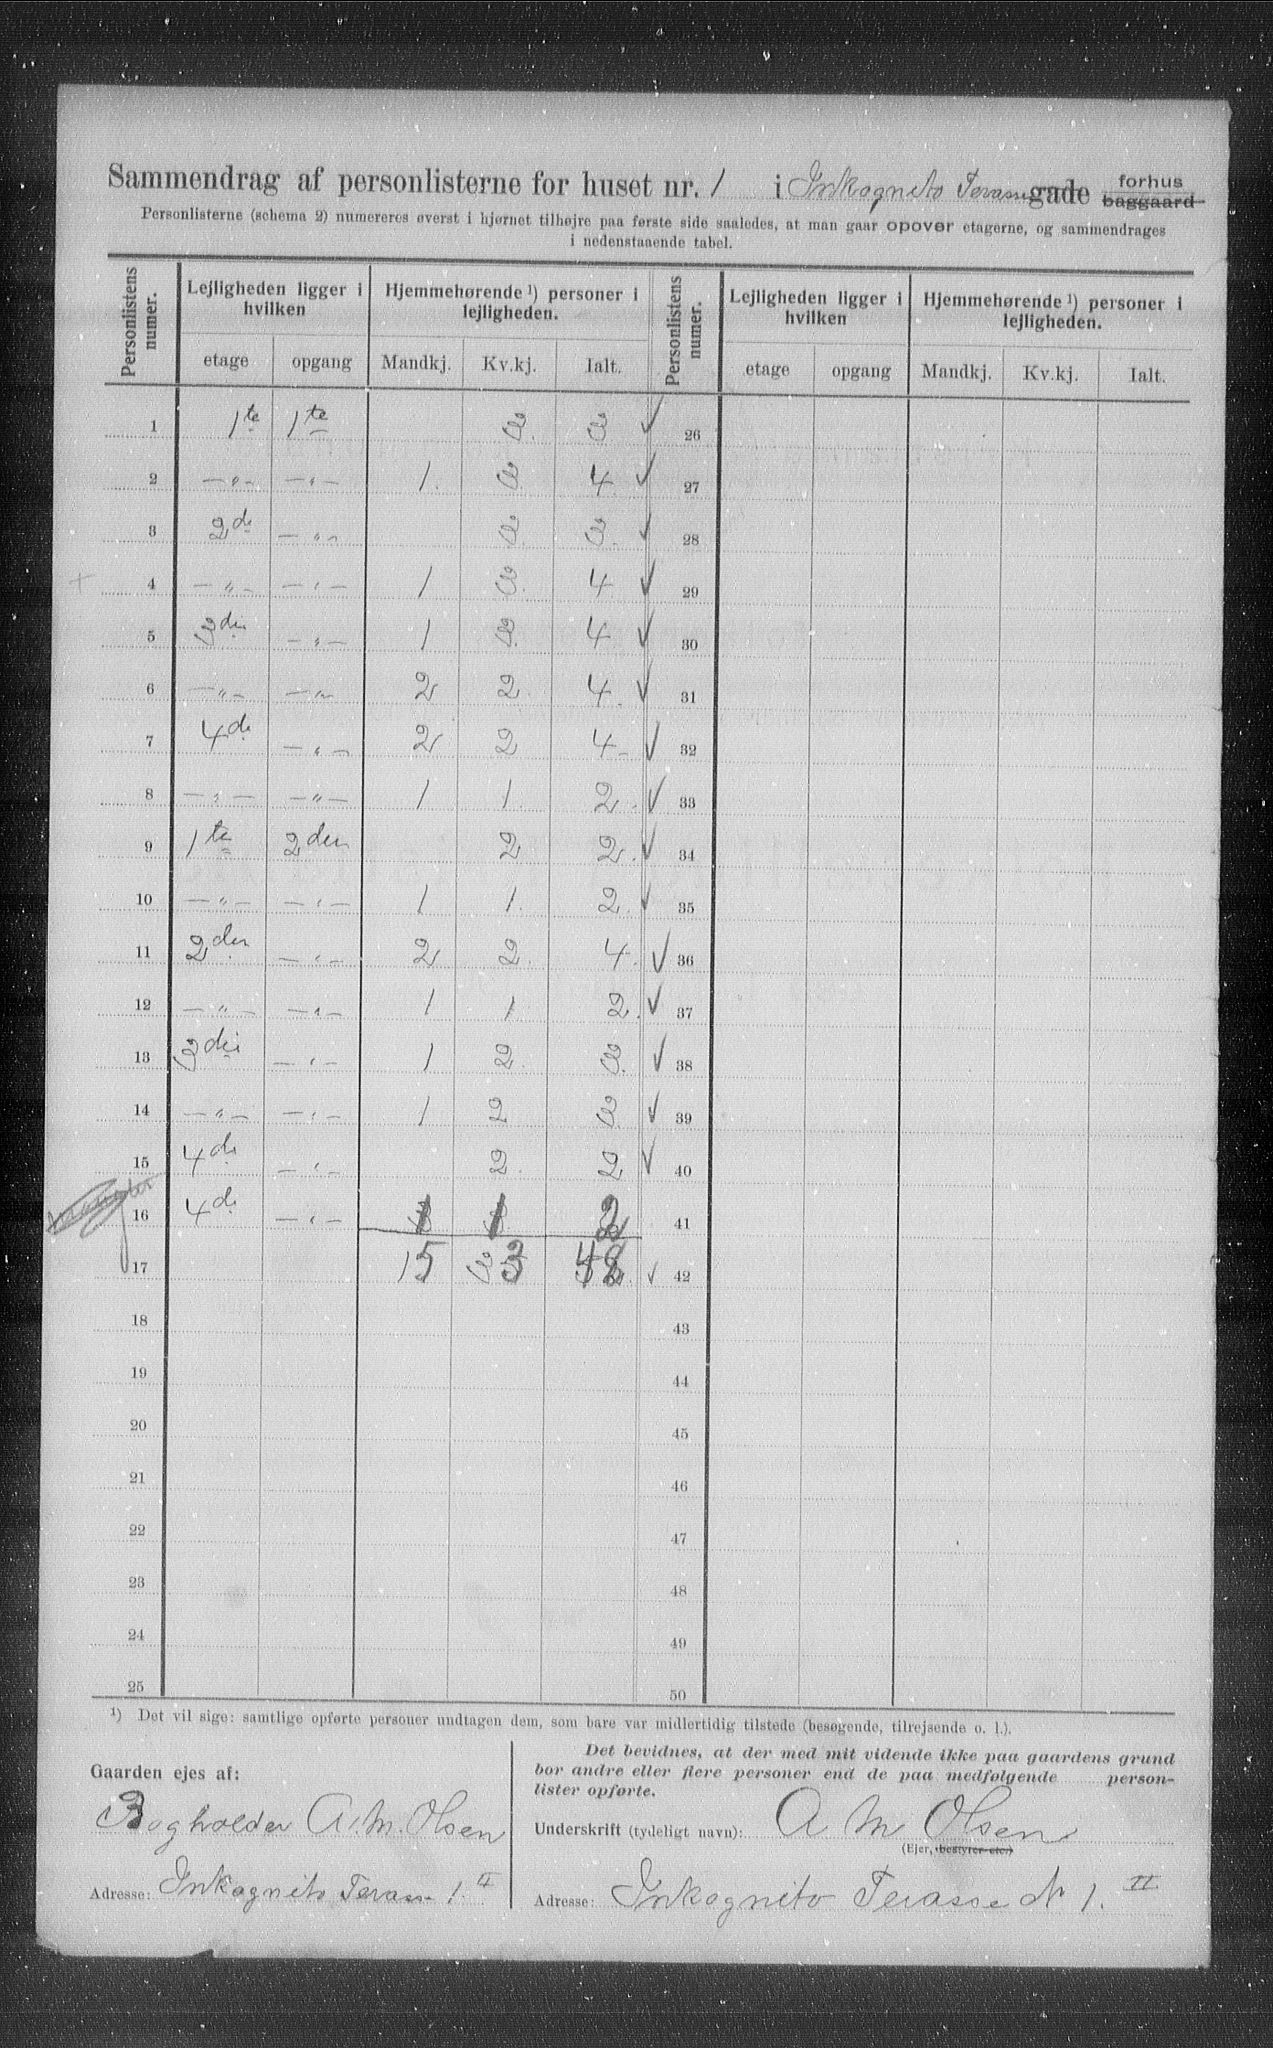 Sammendrag af personlisterne for huset nr. 1 i Inkognito Terasse gade forhus baggaard
Personlisterne (schema 2) numereres øverst i hjørnet tilhøjre paa første side saaledes, at man gaar opover etagerne, og sammendrages
i nedenstaaende tabel.
Personlistens numer. Lejligheden ligger i hvilken Hjemmehørende ¹) personer i lejligheden. Personlistens numer. Lejligheden ligger i hvilken Hjemmehørende ¹) personer i lejligheden.
etage opgang Mandkj. Kv.kj. Ialt. etage opgang Mandkj. Kv.kj. Ialt.
1 1te 1te 3 3 ✓ 26
2 —„— —„— 1 3 4 ✓ 27
3 2de —„— 3 3 ✓ 28
4 —„— —„— 1 3 4 ✓ 29
5 3die —„— 1 3 4 ✓ 30
6 —„— —„— 2 2 4 ✓ 31
7 4de —„— 2 2 4 ✓ 32
8 —„— —„— 1 1 2 ✓ 33
9 1te 2den 2 2 ✓ 34
10 —„— —„— 1 1 2 ✓ 35
11 2den —„— 2 2 4 ✓ 36
12 —„— —„— 1 1 2 ✓ 37
13 3die —„— 1 2 3 ✓ 38
14 —„— —„— 1 2 3 ✓ 39
15 4de —„— 2 2 ✓ 40
16 4de —„— 1 1 2 41
17 15 33 48 ✓ 42
18 43
19 44
20 45
21 46
22 47
23 48
24 49
25 50
¹) Det vil sige: samtlige opførte personer undtagen dem, som bare var midlertidig tilstede (besøgende, tilrejsende o. l.).
Gaarden ejes af:
Bogholder A. M. Olsen
Adresse: Inkognito Terass 1. II
Det bevidnes, at der med mit vidende ikke paa gaardens grund
bor andre eller flere personer end de paa medfølgende person-
lister opførte.
Underskrift (tydeligt navn): A M Olsen
(Ejer, bestyrer etc.)
Adresse: Inkognito Terasse N 1. II